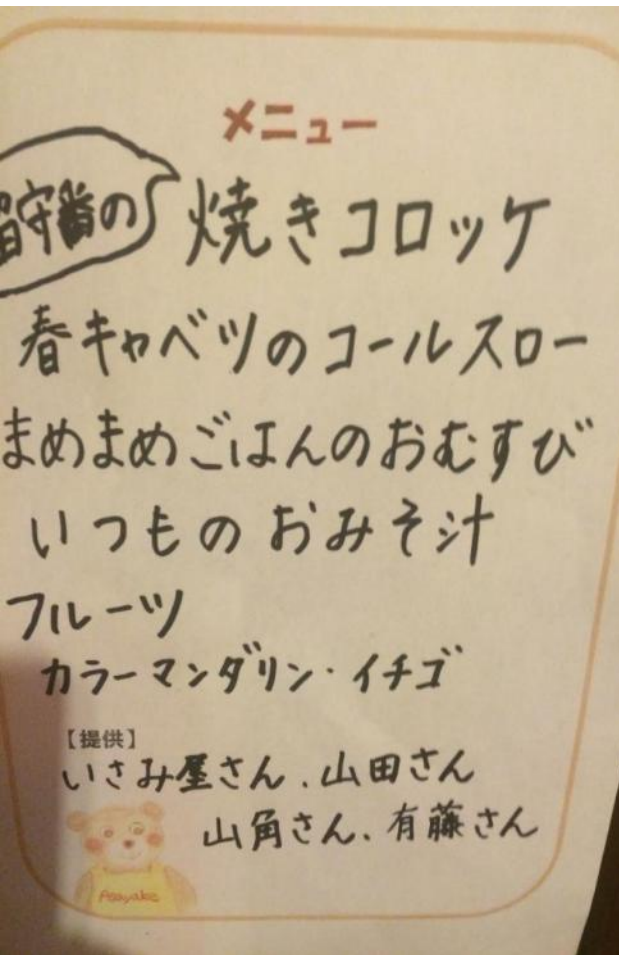 メニュー
留守番の 焼きコロッケ
春キャベツのコールスロー
まめまめごはんのおむすび
いつものおみそ汁
フルーツ
カラーマンダリン・イチゴ
【提供】
いさみ屋さん、山田さん
山角さん、有藤さん